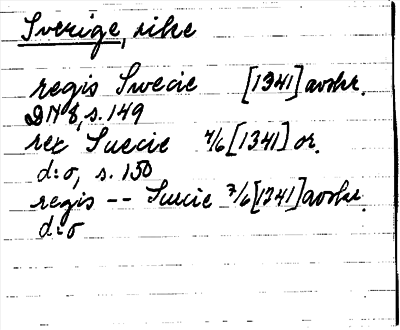 Sverige, rike
regis Swecie [1341] avskr.
DN 8, s. 149
rex Suecie 7/6 [1341] or.
d:o, s. 150
regis -- Suecie 7/6 [1341] avskr.
d:o